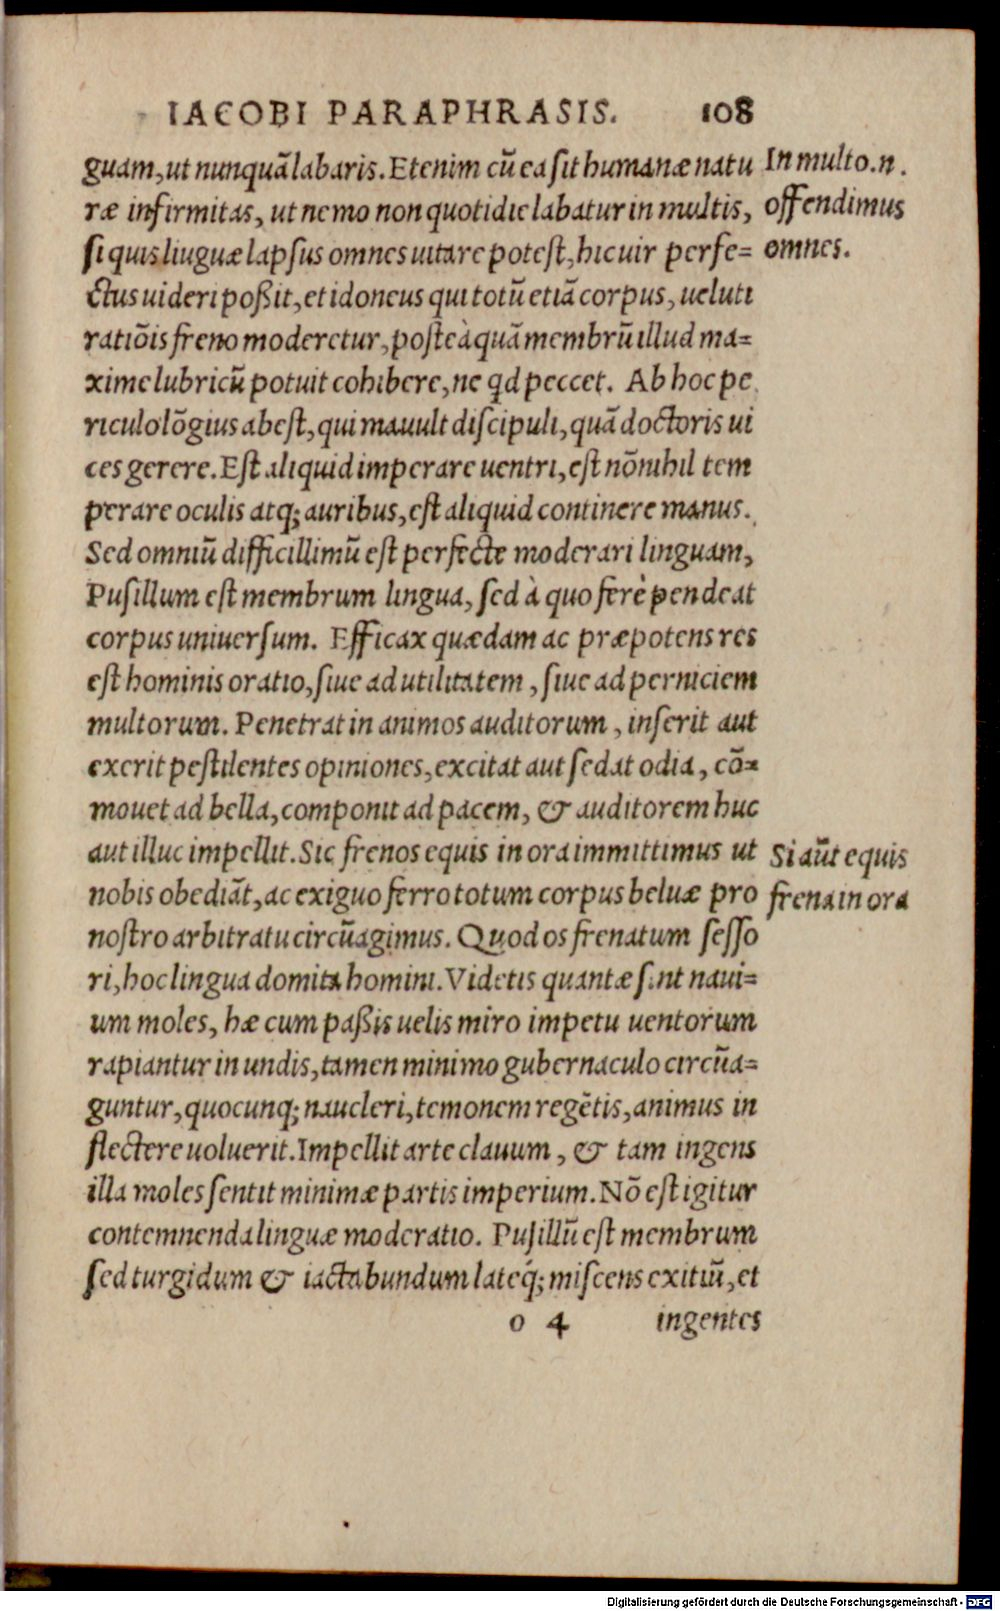 IACOBI PARAPHRASIS. 108
guam, ut nunquā labaris. Etenim cū ea sit humanæ natu
In multo .n.
ræ infirmitas, ut nemo non quotidie labatur in multis,
offendimus
si quis liuguæ lapsus omnes uitare potest, hic uir perfe=
omnes.
ctus uideri poßit, et idoneus qui totū etiā corpus, ueluti
ratiōis freno moderetur, posteàquā membrū illud ma=
xime lubricū potuit cohibere, ne qd peccet. Ab hoc pe
riculo lōgius abest, qui mauult discipuli, quā doctoris ui
ces gerere. Est aliquid imperare uentri, est nōnihil tem
perare oculis atq; auribus, est aliquid continere manus.
Sed omniū difficillimū est perfecte moderari linguam,
Pusillum est membrum lingua, sed à quo ferè pendeat
corpus uniuersum. Efficax quædam ac præpotens res
est hominis oratio, siue ad utilitatem, siue ad perniciem
multorum. Penetrat in animos auditorum, inserit aut
exerit pestilentes opiniones, excitat aut sedat odia, cō=
mouet ad bella, componit ad pacem, & auditorem huc
aut illuc impellit. Sic frenos equis in ora immittimus ut
Si aūt equis
nobis obediāt, ac exiguo ferro totum corpus beluæ pro
frena in ora
nostro arbitratu circūagimus. Quod os frenatum sesso
ri, hoc lingua domita homini. Videtis quantæ sint naui=
um moles, hæ cum paßis uelis miro impetu uentorum
rapiantur in undis, tamen minimo gubernaculo circūa=
guntur, quocunq; naucleri, temonem regētis, animus in
flectere uoluerit. Impellit arte clauum, & tam ingens
illa moles sentit minimæ partis imperium. Nō est igitur
contemnenda linguæ moderatio. Pusillū est membrum
sed turgidum & iactabundum lateq́; miscens exitiū, et
o 4 ingentes
Digitalisierung gefördert durch die Deutsche Forschungsgemeinschaft - DFG